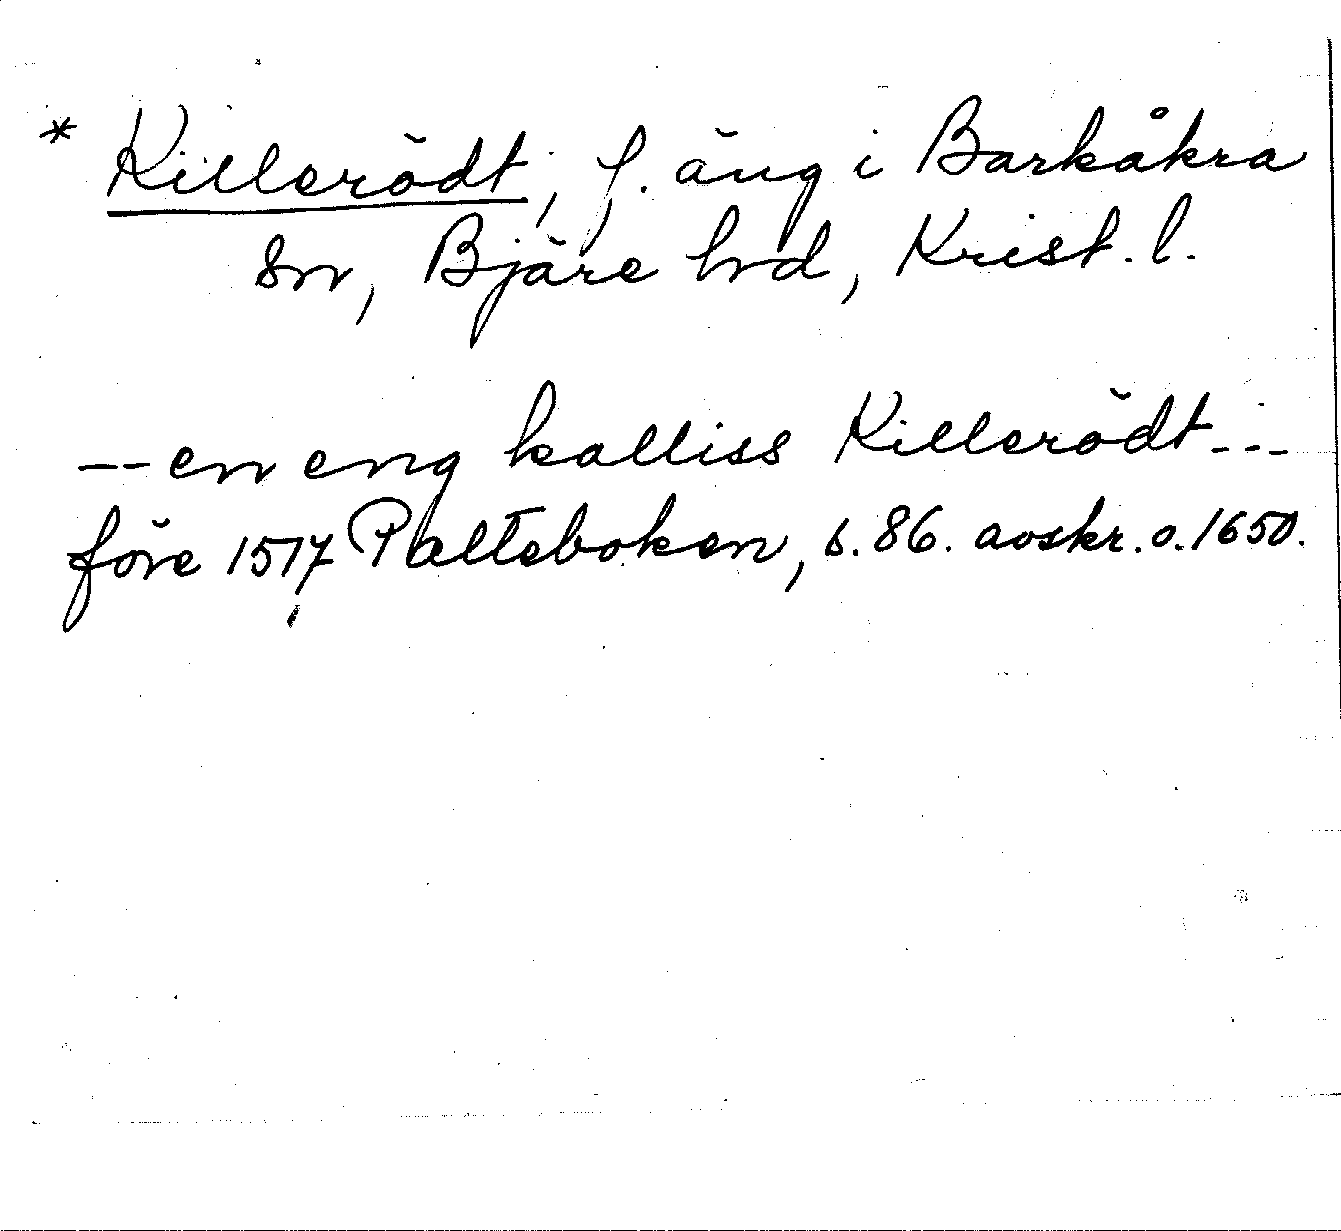 * Killerödt, f. äng i Barkåkra
sn, Bjäre hd, Krist. l.
-- en eng kalliss Killerödt ---
före 1517 Palteboken, s. 86. avskr. o. 1650.